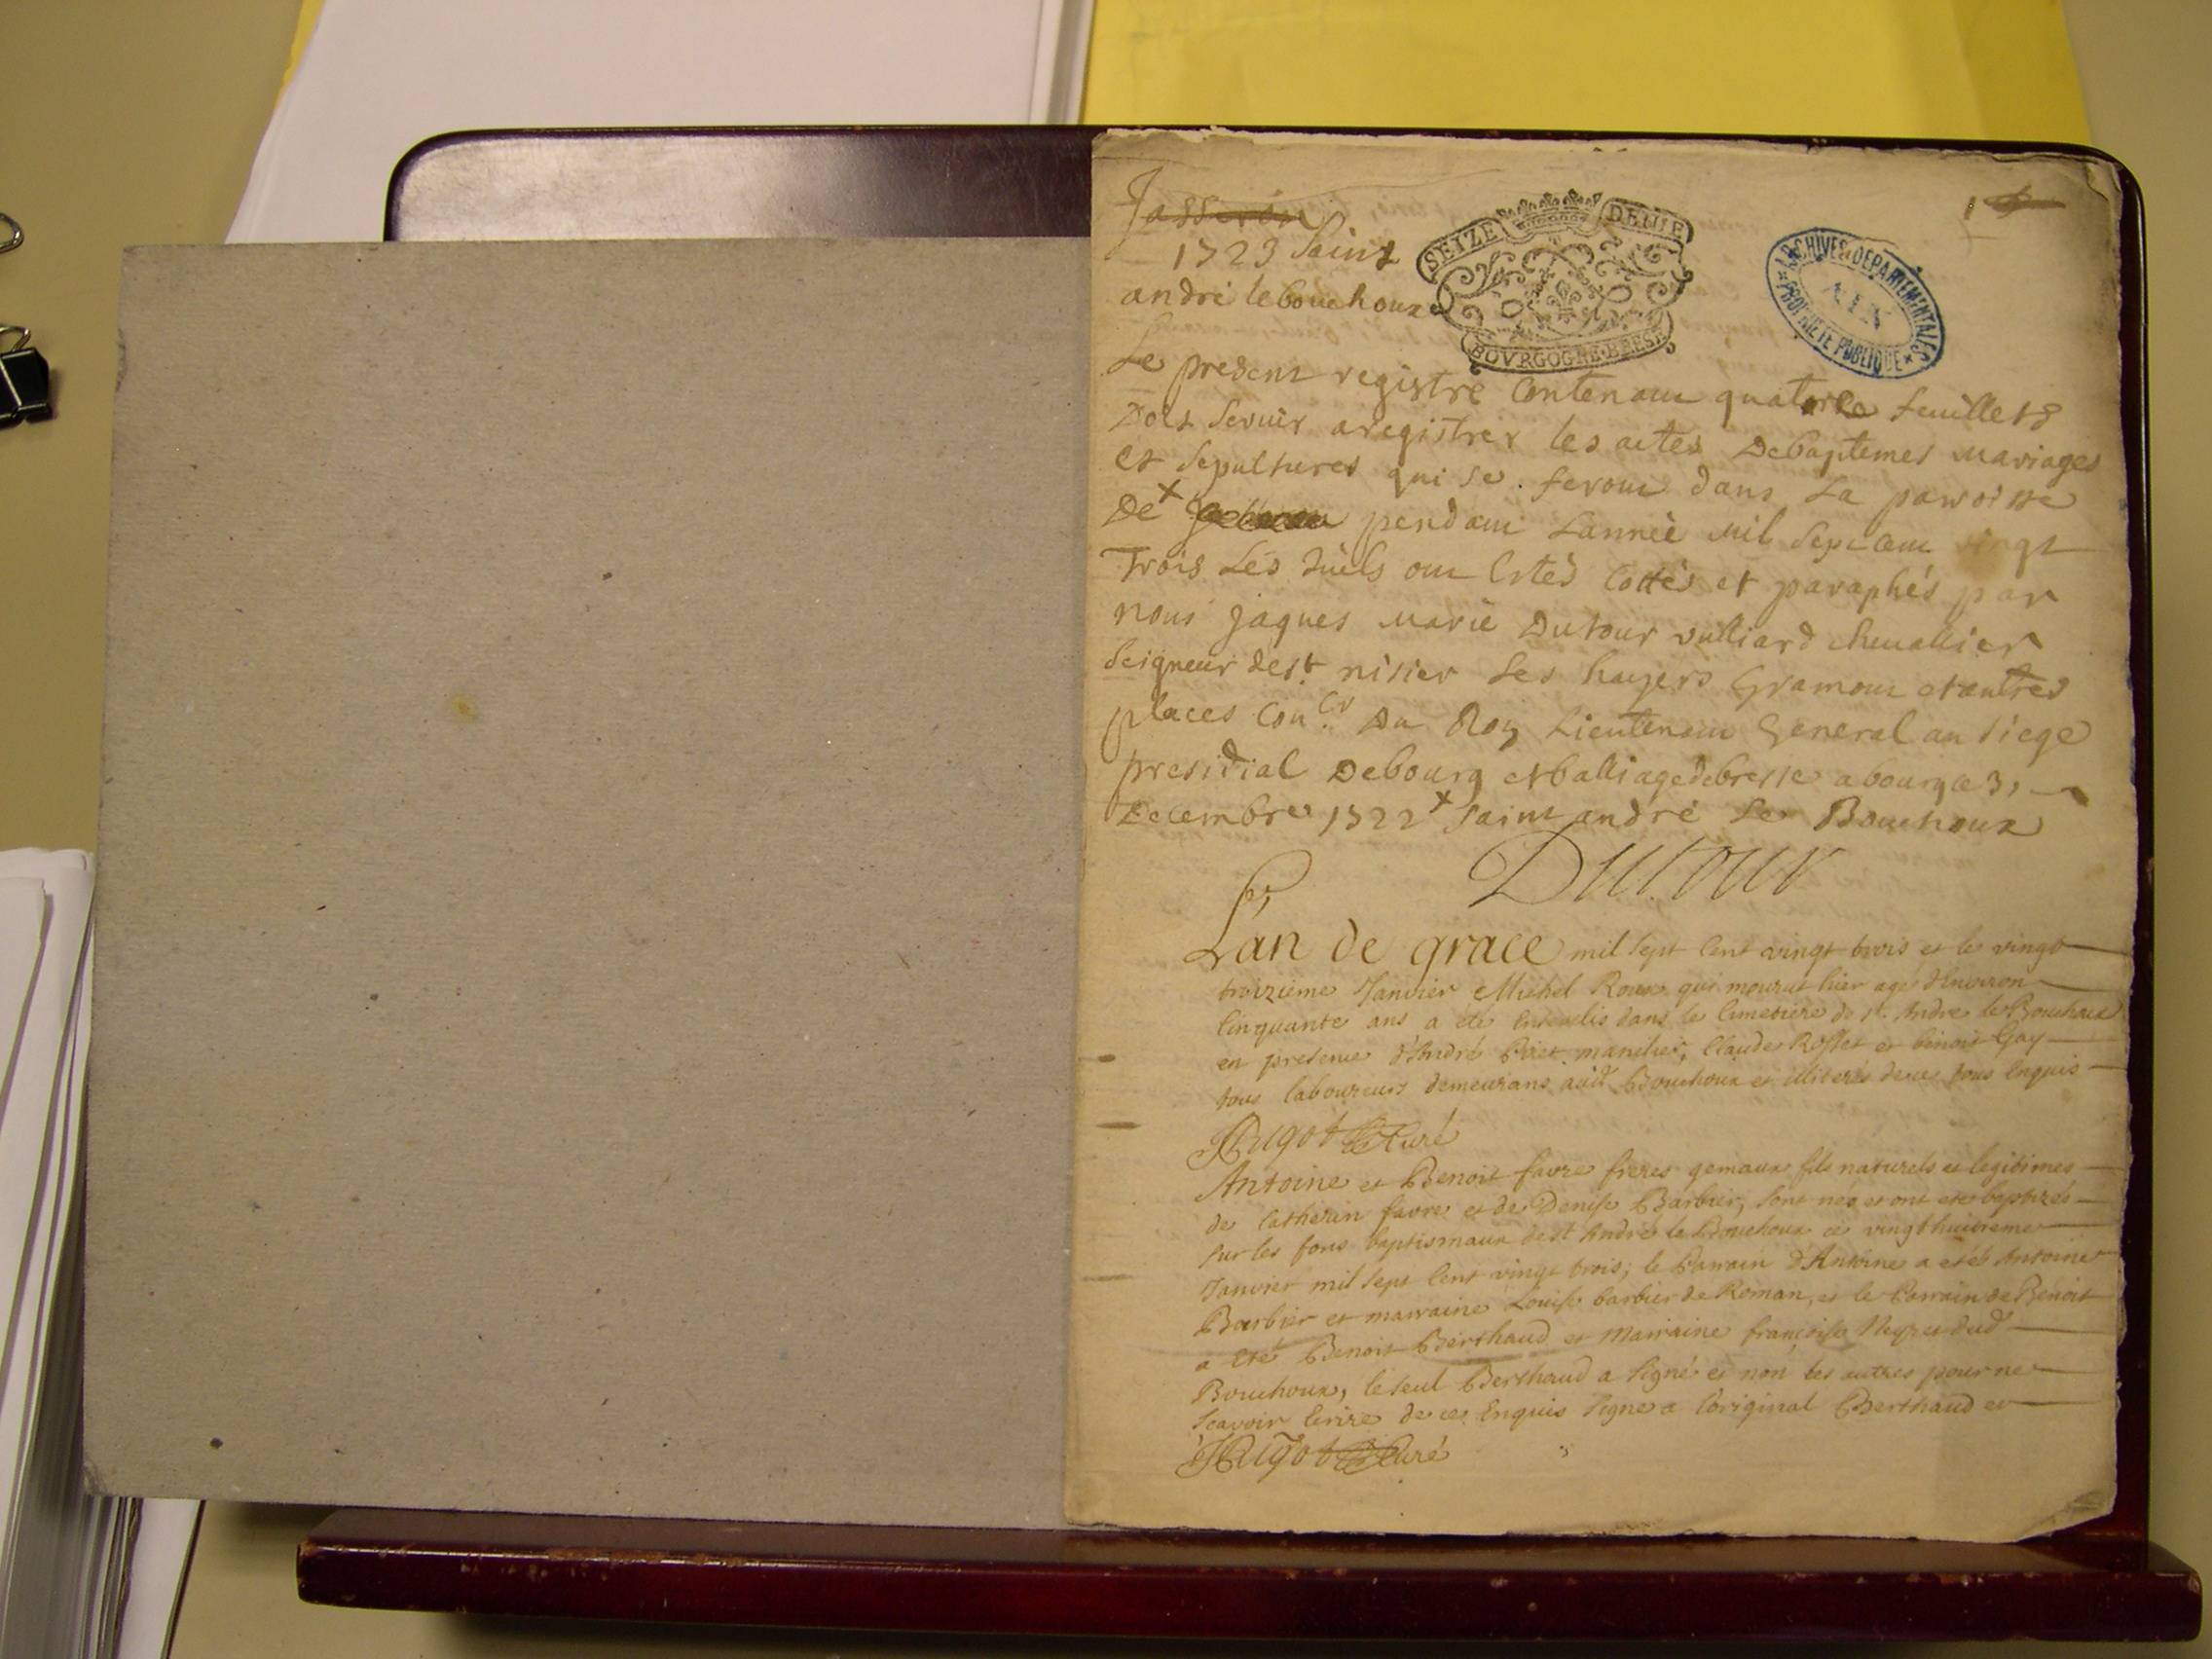 Jasseron
1723 Saint
andré le bouchoux
SEIZE DENIE
BOVRGOGNE·BRESE
ARCHIVES DEPARTEMENTALES
AIN
PROPRIETE PUBLIQUE
1
Le present registre Contenant quatorze feuillets
Doit Servir a registrer les actes De baptemes mariages
Et Sepultures qui se feront dans La parroisse
De x pendant L'année Mil Sept Cent vingt
Trois Les quels ont Estés Cottés et paraphés par
nous Jaques Marie Dutour vulliard chevallier
Seigneur de st nisier Les hayers Gramont et autres
places Con.er Du Roy Lieutenant General au siege
presidial De bourg et balliage de bresse a bourg ce 31
Decembre 1722 x Saint andré Le Bouchoux
Dutour
L'an de grace mil sept cent vingt trois et le vingt
troizieme Janvier Michel Roux qui mourut hier agé d'Environ
Cinquante ans a eté Enseveli dans le Cimetiere de st. Andre le Bouchoux
en presence d'André Piret manilier, Claude Rosset et benoit Gay
tous laboureurs demeurans audt Bouchoux et illiterés de ce tous Enquis
Hugot Curé
Antoine et Benoit favre freres gemaux fils naturels et legitimes
de Catherin favre et de Denise Barbier, sont nés et ont eté baptizés
sur les fons baptismaux de st André le Bouchoux ce vingt huitieme
Janvier mil sept cent vingt trois; le Parrain d'Antoine a eté Antoine
Barbier et marraine Louise barbier de Roman, et le Parrain de Benoit
a eté Benoit Berthaud et Marraine françoise Neyret dud
Bouchoux, le seul Berthaud a signé et non les autres pour ne
sçavoir Ecrire de ce Enquis signe a l'original Berthaud et
Hugot Curé